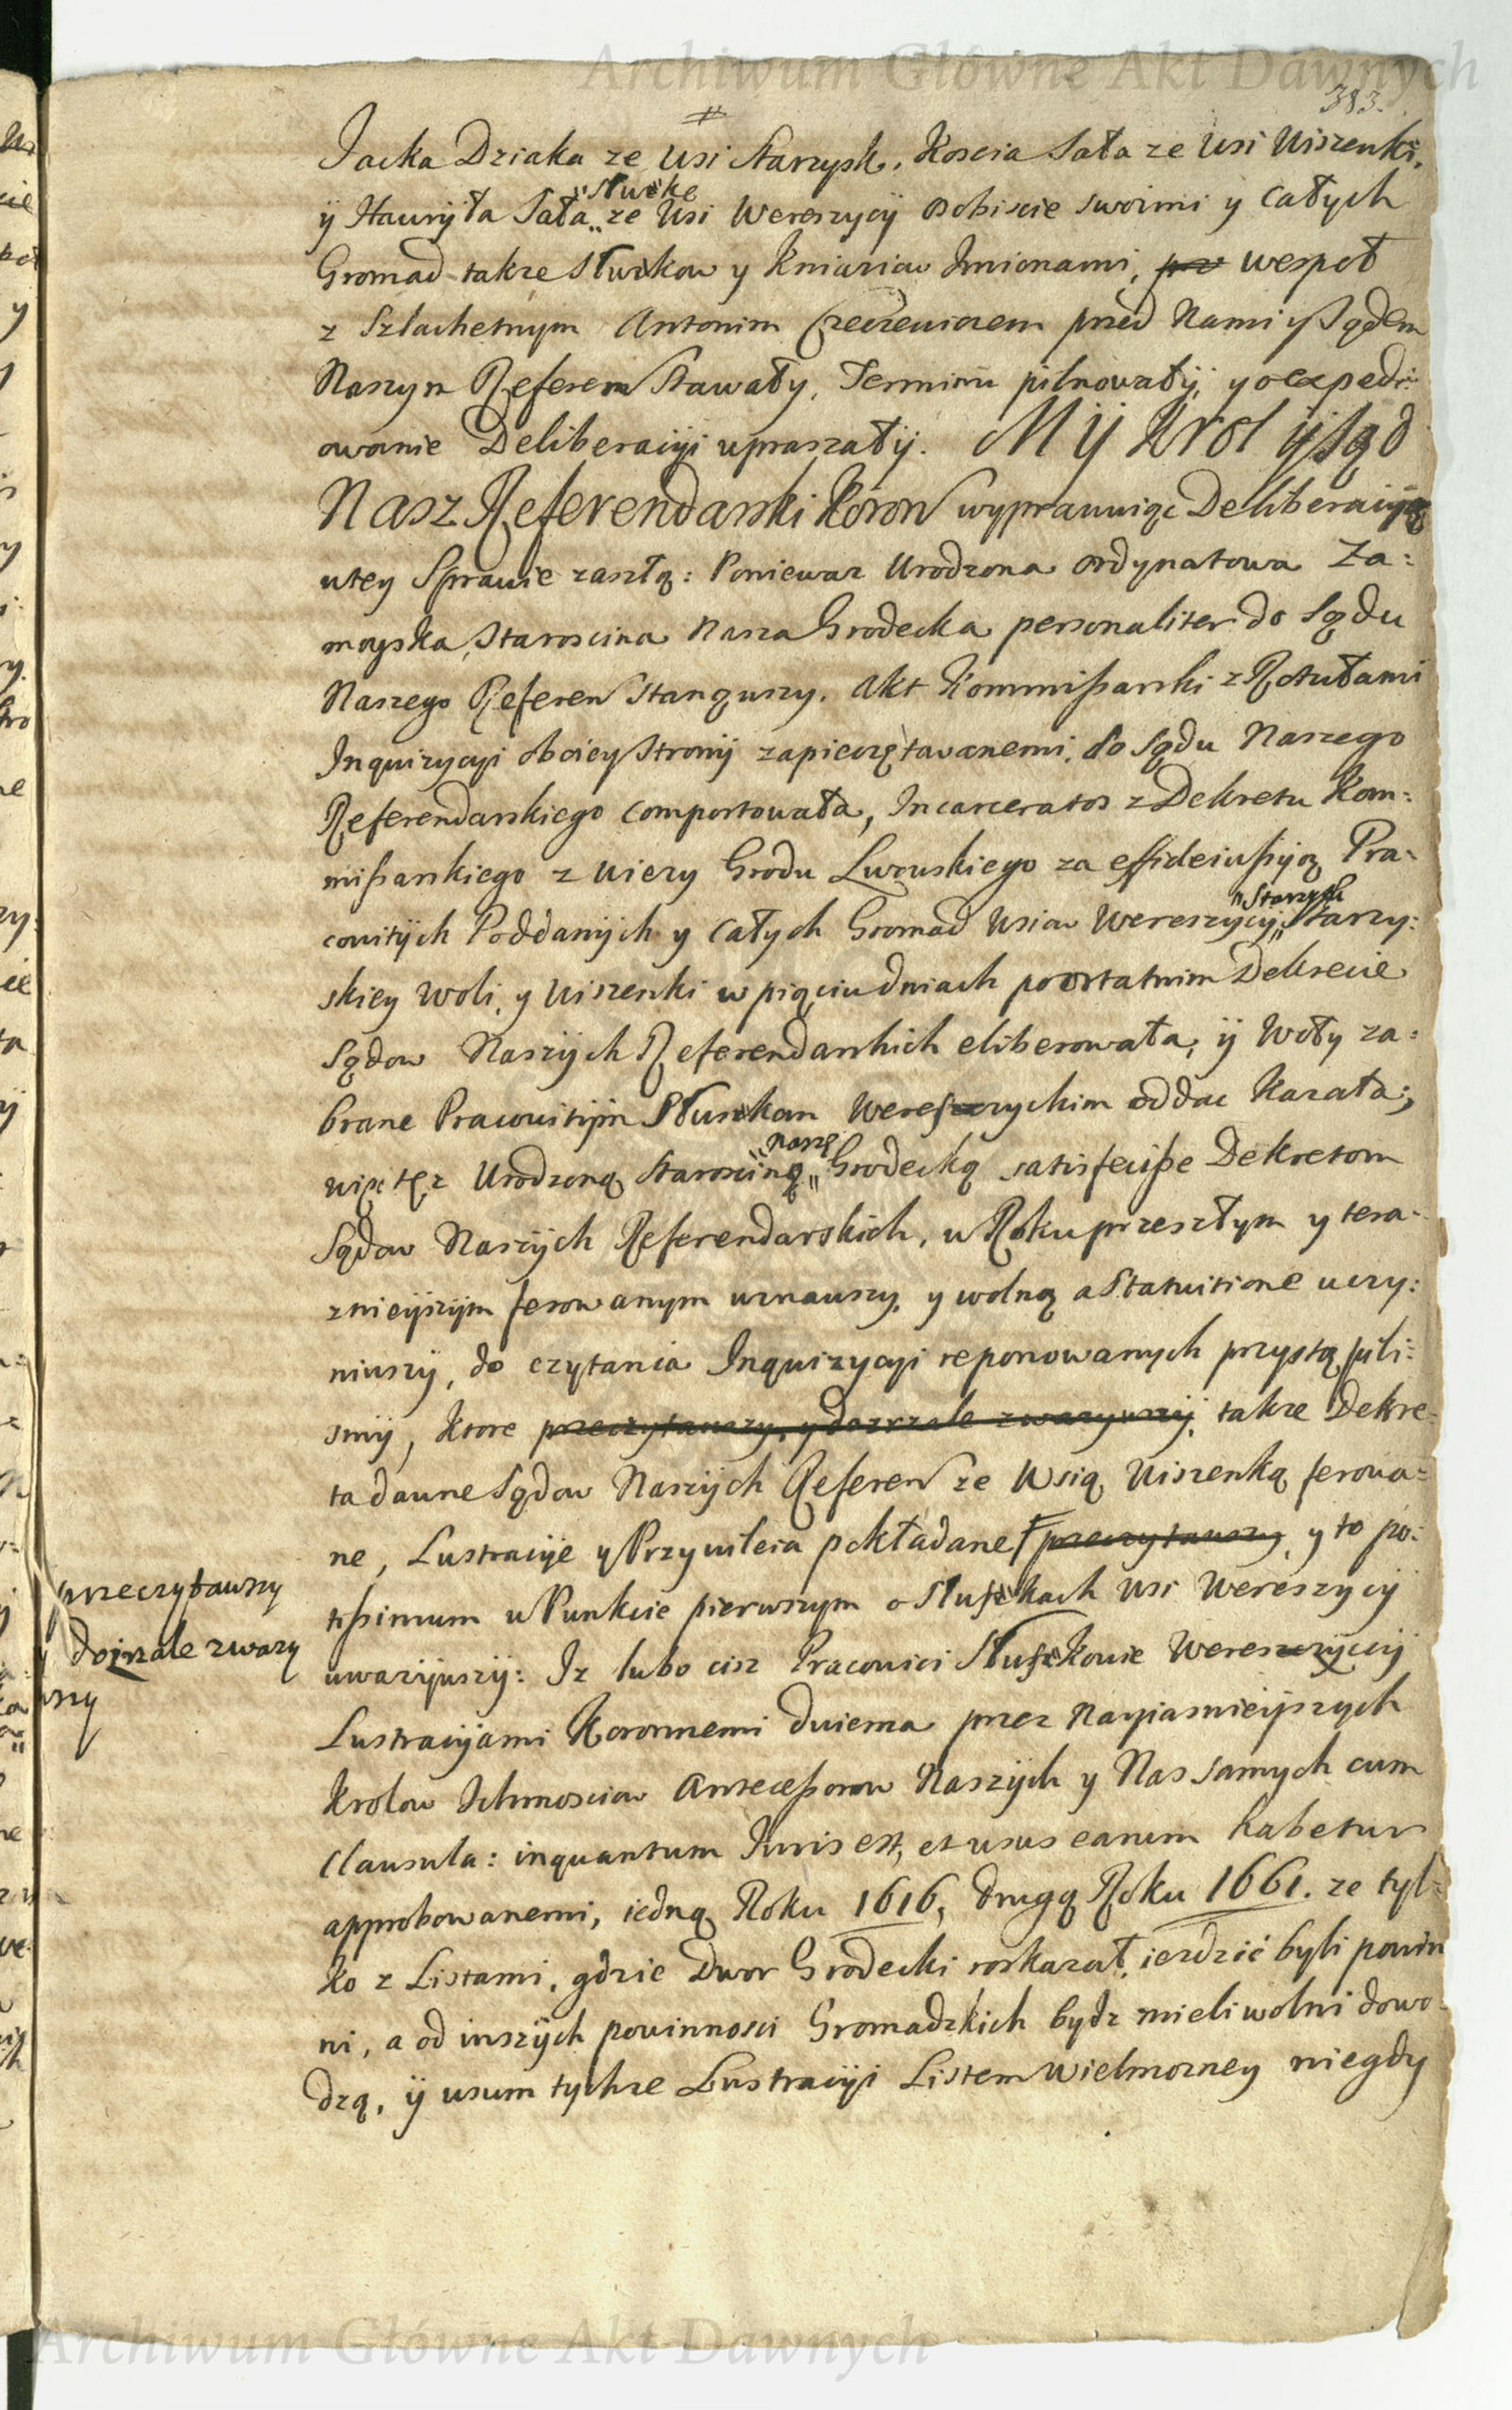 Archiwum Główne Akt Dawnych
383.
#
Jacka Dziaka ze Wsi Starzysk, Koscia Sała ze Wsi Wiszenki,
ÿ Hawryła Sała „Służkę„ ze Wsi Wereszycÿ osobiscie swoimi y całych
Gromad takze Służkow y Kniaziow Jmionami, prz wespoł
z Szlachetnym Antonim Czeczewiczem przed Nami y Sądem
Naszym Referen Stawały, Terminu pilnowałÿ, y o expedi-
owanie Deliberacÿi upraszałÿ. Mÿ Krol ÿ Sąd
Nasz Referendarski Koron wyprawuiąc Deliberacÿą
w tey Sprawie zaszłą: Poniewaz Urodzona Ordynatowa Za:
moyska, Staroscina Nasza Grodecka personaliter do Sądu
Naszego Referen Stanąwszy. Akt Kommissarski z Rotułami
Inquizycyi oboiey Stronÿ zapieczętowanemi, do Sądu Naszego
Referendarskiego comportowała, Incarceratos z Dekretu Kom:
missarskiego z Wiezy Grodu Lwowskiego za effideiussÿą Pra-
cowitÿch Poddanÿch y całych Gromad Wsiow Wereszycÿ, „Starzysk„ Starzy:
skiey Woli, y Wiszenki w pięciu dniach po ostatnim Dekrecie
Sądow Naszÿch Referendarskich eliberowała, ÿ Woły za:
brane Pracowitÿm Służkom Wereszyckim oddac Kazała;
więc tęz Urodzoną Staroscinę „Naszę„ Grodecką satisfecisse Dekretom
Sądow Naszÿch Referendarskich, w Roku przeszłym y tera-
znieÿszÿm ferowanym uznawszy, y wolną a Statuitione uczy:
niwszÿ, do czytania Inquizycyi reponowanych przystąpili:
smÿ, Ktore przeczytawszy, y dozrzale zwazywszÿ, takze Dekre-
ta dawne Sądow Naszÿch Referen ze Wsią Wiszenką ferowa-
ne, Lustracÿe y Przywileia pokładane, przeczytawszy, y to po:
tissimum w Punkcie pierwszym o Służkach Wsi Wereszycÿ
przeczytawszy
y dojrzale zwazy
wszy
uwazÿwszÿ: Iz lubo cisz Pracowici Służkowie Wereszyccÿ
Lustracÿami Koronnemi dwiema przez Nayiasnieÿszych
Krolow Ichmosciow Antecessorow Naszÿch y Nas samych cum
Clausula: inquantum Iuris est, et usus earum habetur
approbowanemi, iedną Roku 1616, drugą Roku 1661. ze tyl-
ko z Listami, gdzie Dwor Grodecki roskazał, iezdzić byli powin
ni, a od inszÿch powinnosci Gromadzkich bydz mieli wolni dowo-
dzą, ÿ usum tychze Lustracÿi Listem Wielmozney niegdy
Archiwum Główne Akt Dawnych